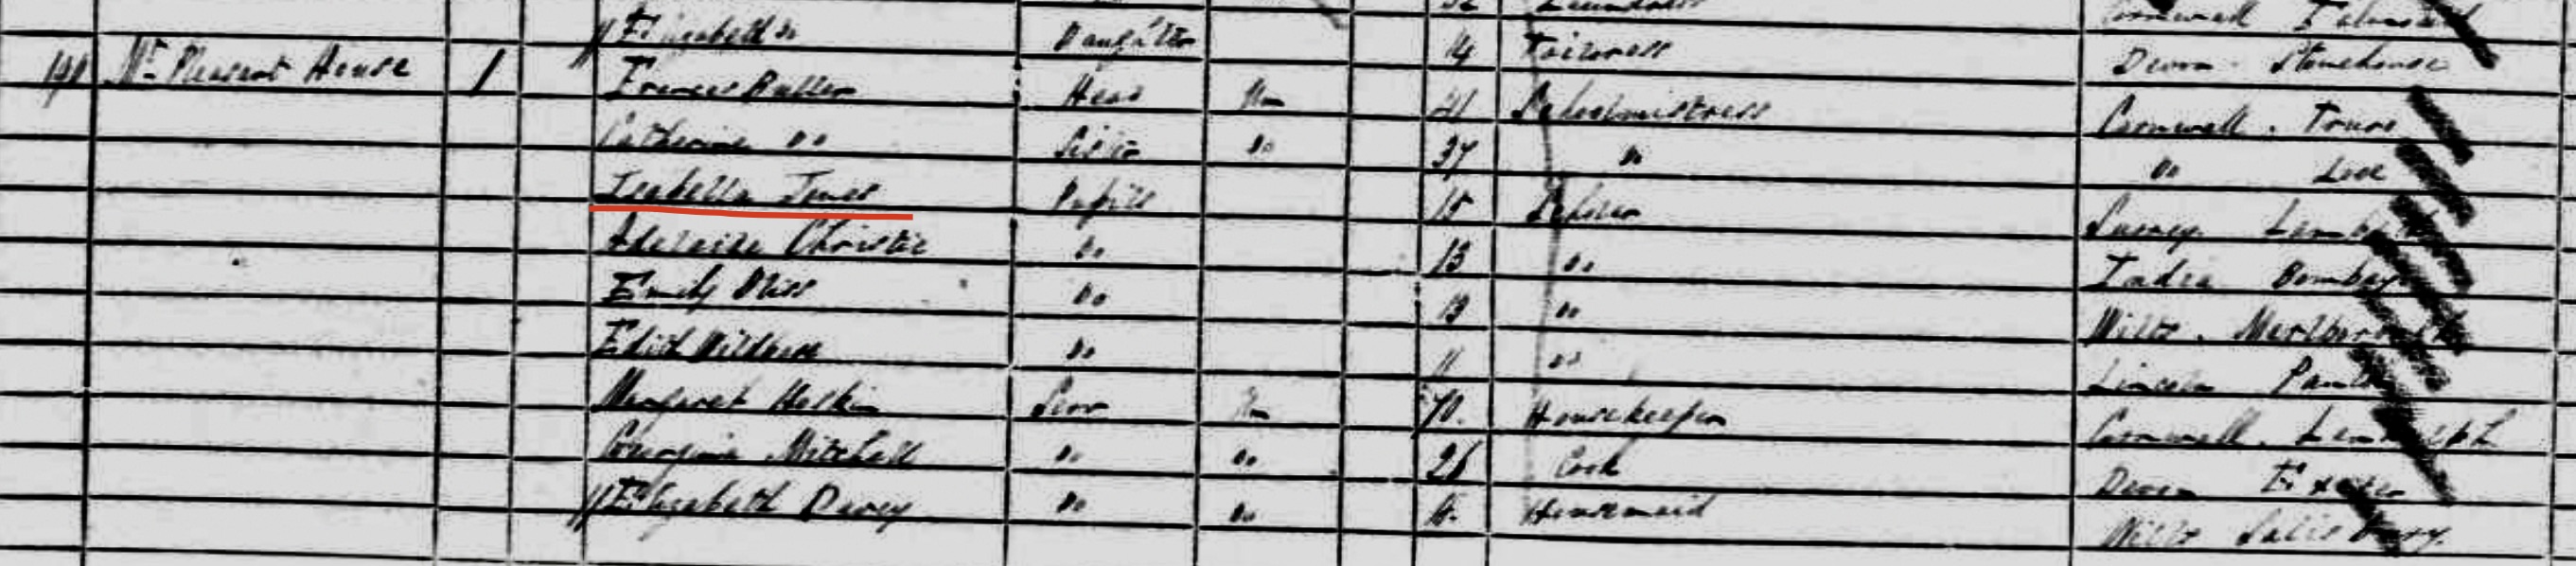 Elizabeth Do Daughter 14 Tailoress Devon. Stonehouse
141 Mt Pleasant House 1 Frances Buller Head Un 41 Schoolmistress Cornwall. Truro
Catherine Do Sister Do 37 Do Do Looe
Isabella Jones Pupils 15 Scholar Surrey Lambeth
Adelaide Christie Do 13 Do India Bombay
Emily Do 13 Do Wilts. Marlborough
Edith Do 11 Do Lincoln
Margaret Hoskin Serv Un 70. Housekeeper Cornwall. Landulph
Georgina Mitchell Do Do 26 Cook Devon Exeter
Elizabeth Davey Do Do Housemaid Wilts Salisbury.